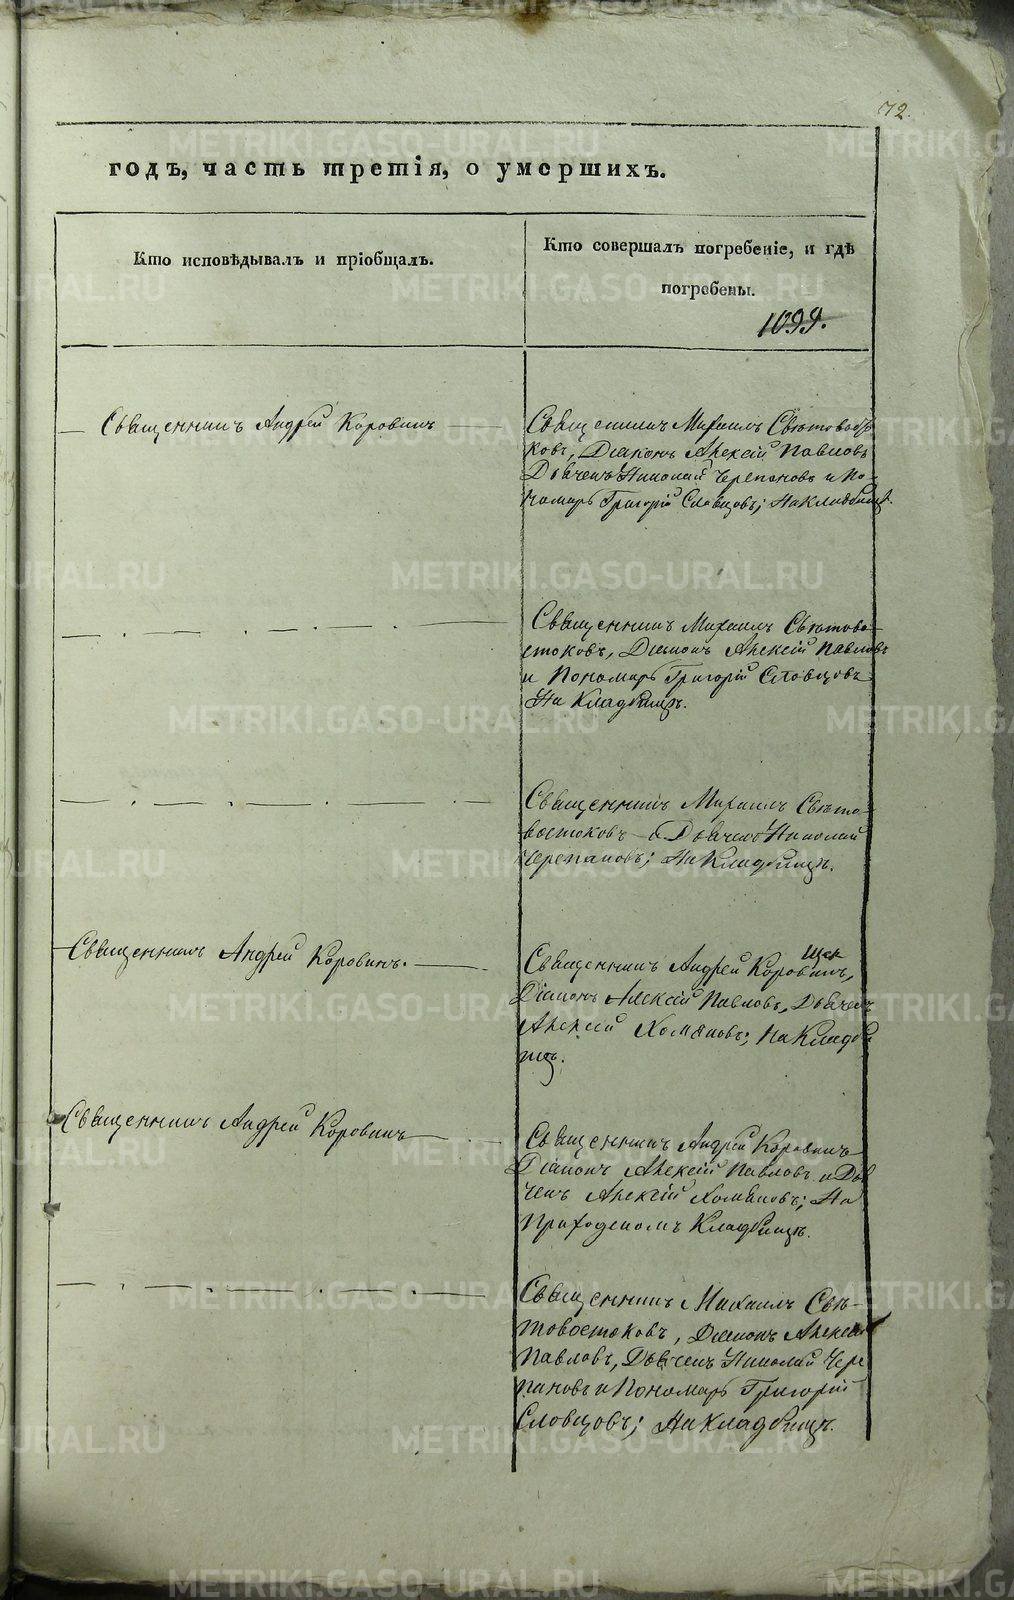 72.
годъ, часть третія, о умершихъ.
Кто исповѣдывалъ и пріобщалъ.
Кто совершалъ погребеніе, и гдѣ
погребены.
1099.
Священникъ Андрей Коровинъ
Священникъ Михаилъ Свѣтовосто
ковъ, Діаконъ Алексій Павловъ
Дьячекъ Николай Черепановъ и По-
номарь Григорій Словцовъ; На кладбищѣ.
Священникъ Михаилъ Свѣтово-
стоковъ, Діаконъ Алексій Павловъ
и Пономарь Григорій Словцовъ
На Кладбищѣ.
Священникъ Михаилъ Свѣто-
востоковъ Дьячекъ Николай
Черепановъ; На Кладбищѣ.
Священникъ Андрей Коровинъ.
Священникъ Андрей Коровинъ,
Діаконъ Алексій Павловъ, Дьячекъ
Алексей Хомяковъ; На Кладби
щѣ.
Священникъ Андрей Коровинъ
Священникъ Андрей Коровинъ
Діаконъ Алексій Павловъ и Дья
чекъ Алексій Хомяковъ; На
Приходскомъ Кладбищѣ.
Священникъ Михаилъ Свѣ-
товостоковъ, Діаконъ Алексій
Павловъ, Дьячекъ Николай Чере
пановъ и Пономарь Григорій
Словцовъ; На Кладбищѣ.
METRIKI.GASO-URAL.RU